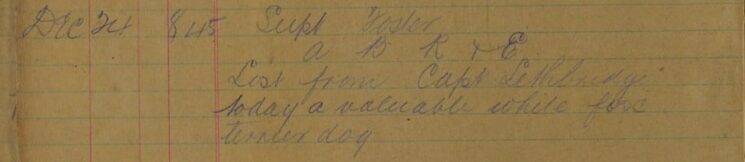 Dec 24 845 Supt Foster
a B R & E
Lost from Capt Lethbridge
today a valuable white fox
terrier dog